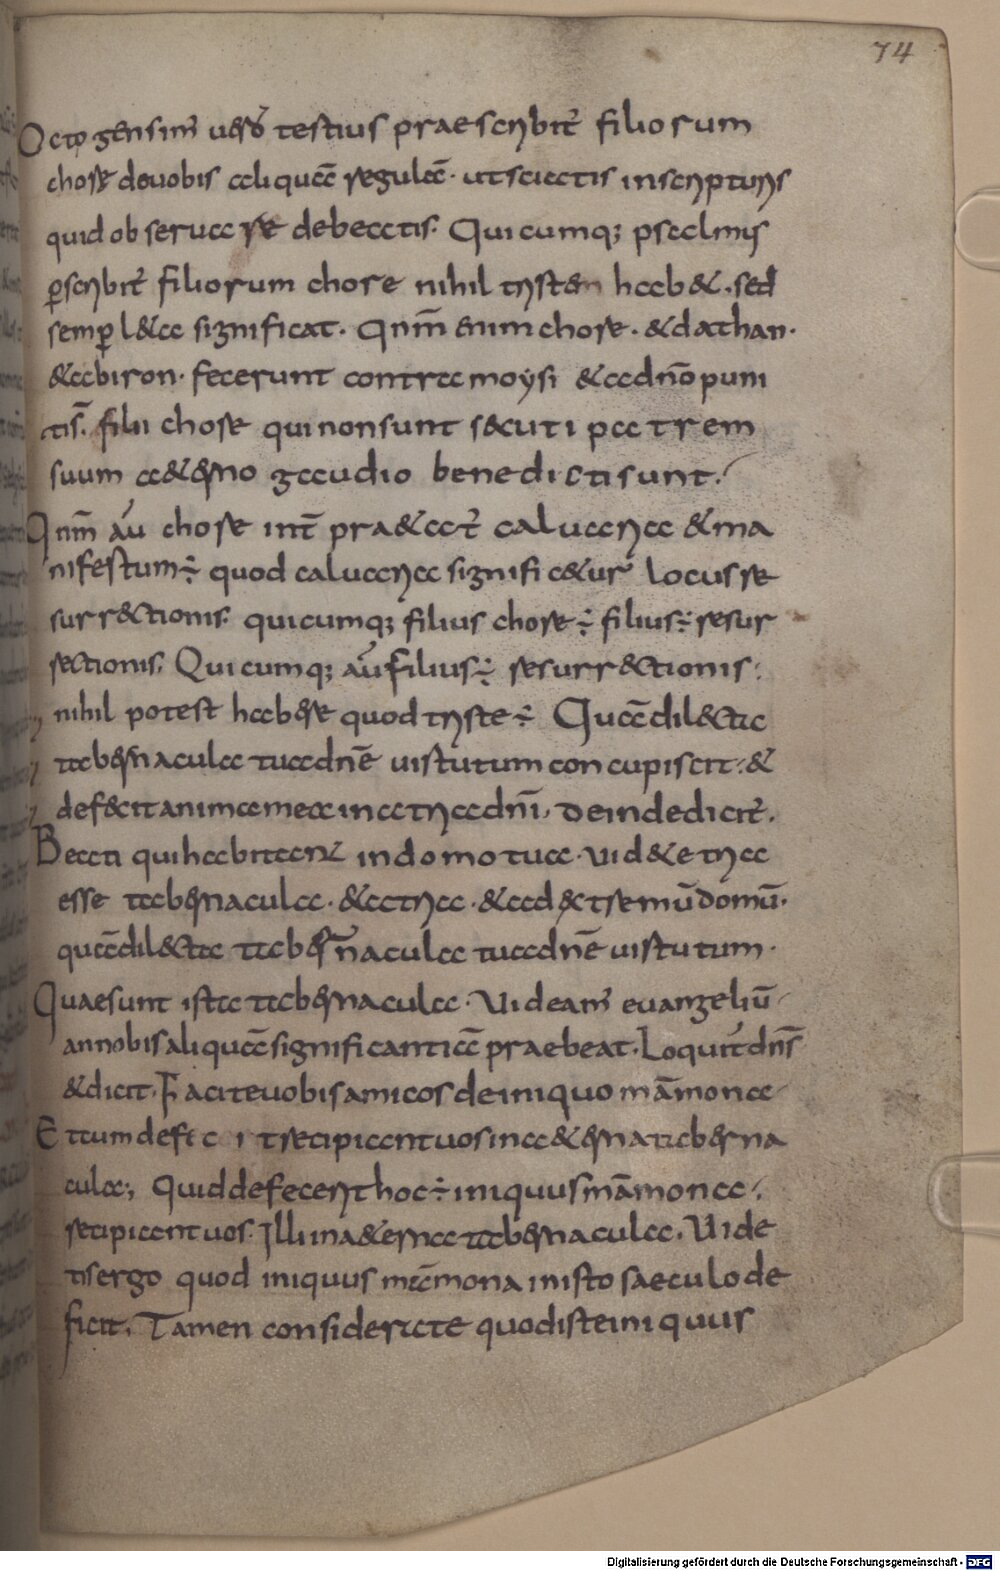 74
Octogensim̄ uersꝰ tertius praescribit̄ filiorum
chore douobis aliquā regulā. ut sciatis inscripturis
quid obseruare debeatis. Quicumq; psalmis
p̱scribit̄ filiorum chore nihil tristem hab&. sed
semp̱ l&a significat. Qnm̄ enim chore. & dathan.
& abiron. fecerunt contra moysi & addn̄o puni
tis. filii chore qui non sunt secuti patrem
suum a&erno gaudio benedicti sunt.
Qnm̄ aū chore int̄ pra&at̄ caluaria & ma
nifestum ÷ quod caluaria signific&ur locus re
surr&ctionis. quicumq; filius chore ÷ filius ÷ resur
rectionis. Quicumq; aū filius ÷ resurr&ctionis.
nihil potest habere quod triste ÷ Quādil&cta
tabernacula tua dnē uirtutum concupiscit. &
defecit anima mea in atria dnī. Deinde dicit̄.
Beati qui habitant in domo tua. uid&e tria
esse tabernacula. & atria. & ad extremū domū.
quā dil&cta tabernacula tua dnē uirtutum.
Quae sunt ista tabernacula. Videam̄ euangeliū
an nobis aliquā significantiā praebeat. Loquit̄ dn̄s
& dicit. Facite uobis amicos de iniquo māmona
Et cum defecit recipiant uos in a&erna taberna
cula; Quid defecerit hoc ÷ iniquus māmona.
recipiant uos. Illi in a&erna tabernacula. Vide
tis ergo quod iniquus māmona in isto saeculo de
ficit. Tamen considerate quod iste iniquus
Digitalisierung gefördert durch die Deutsche Forschungsgemeinschaft - DFG